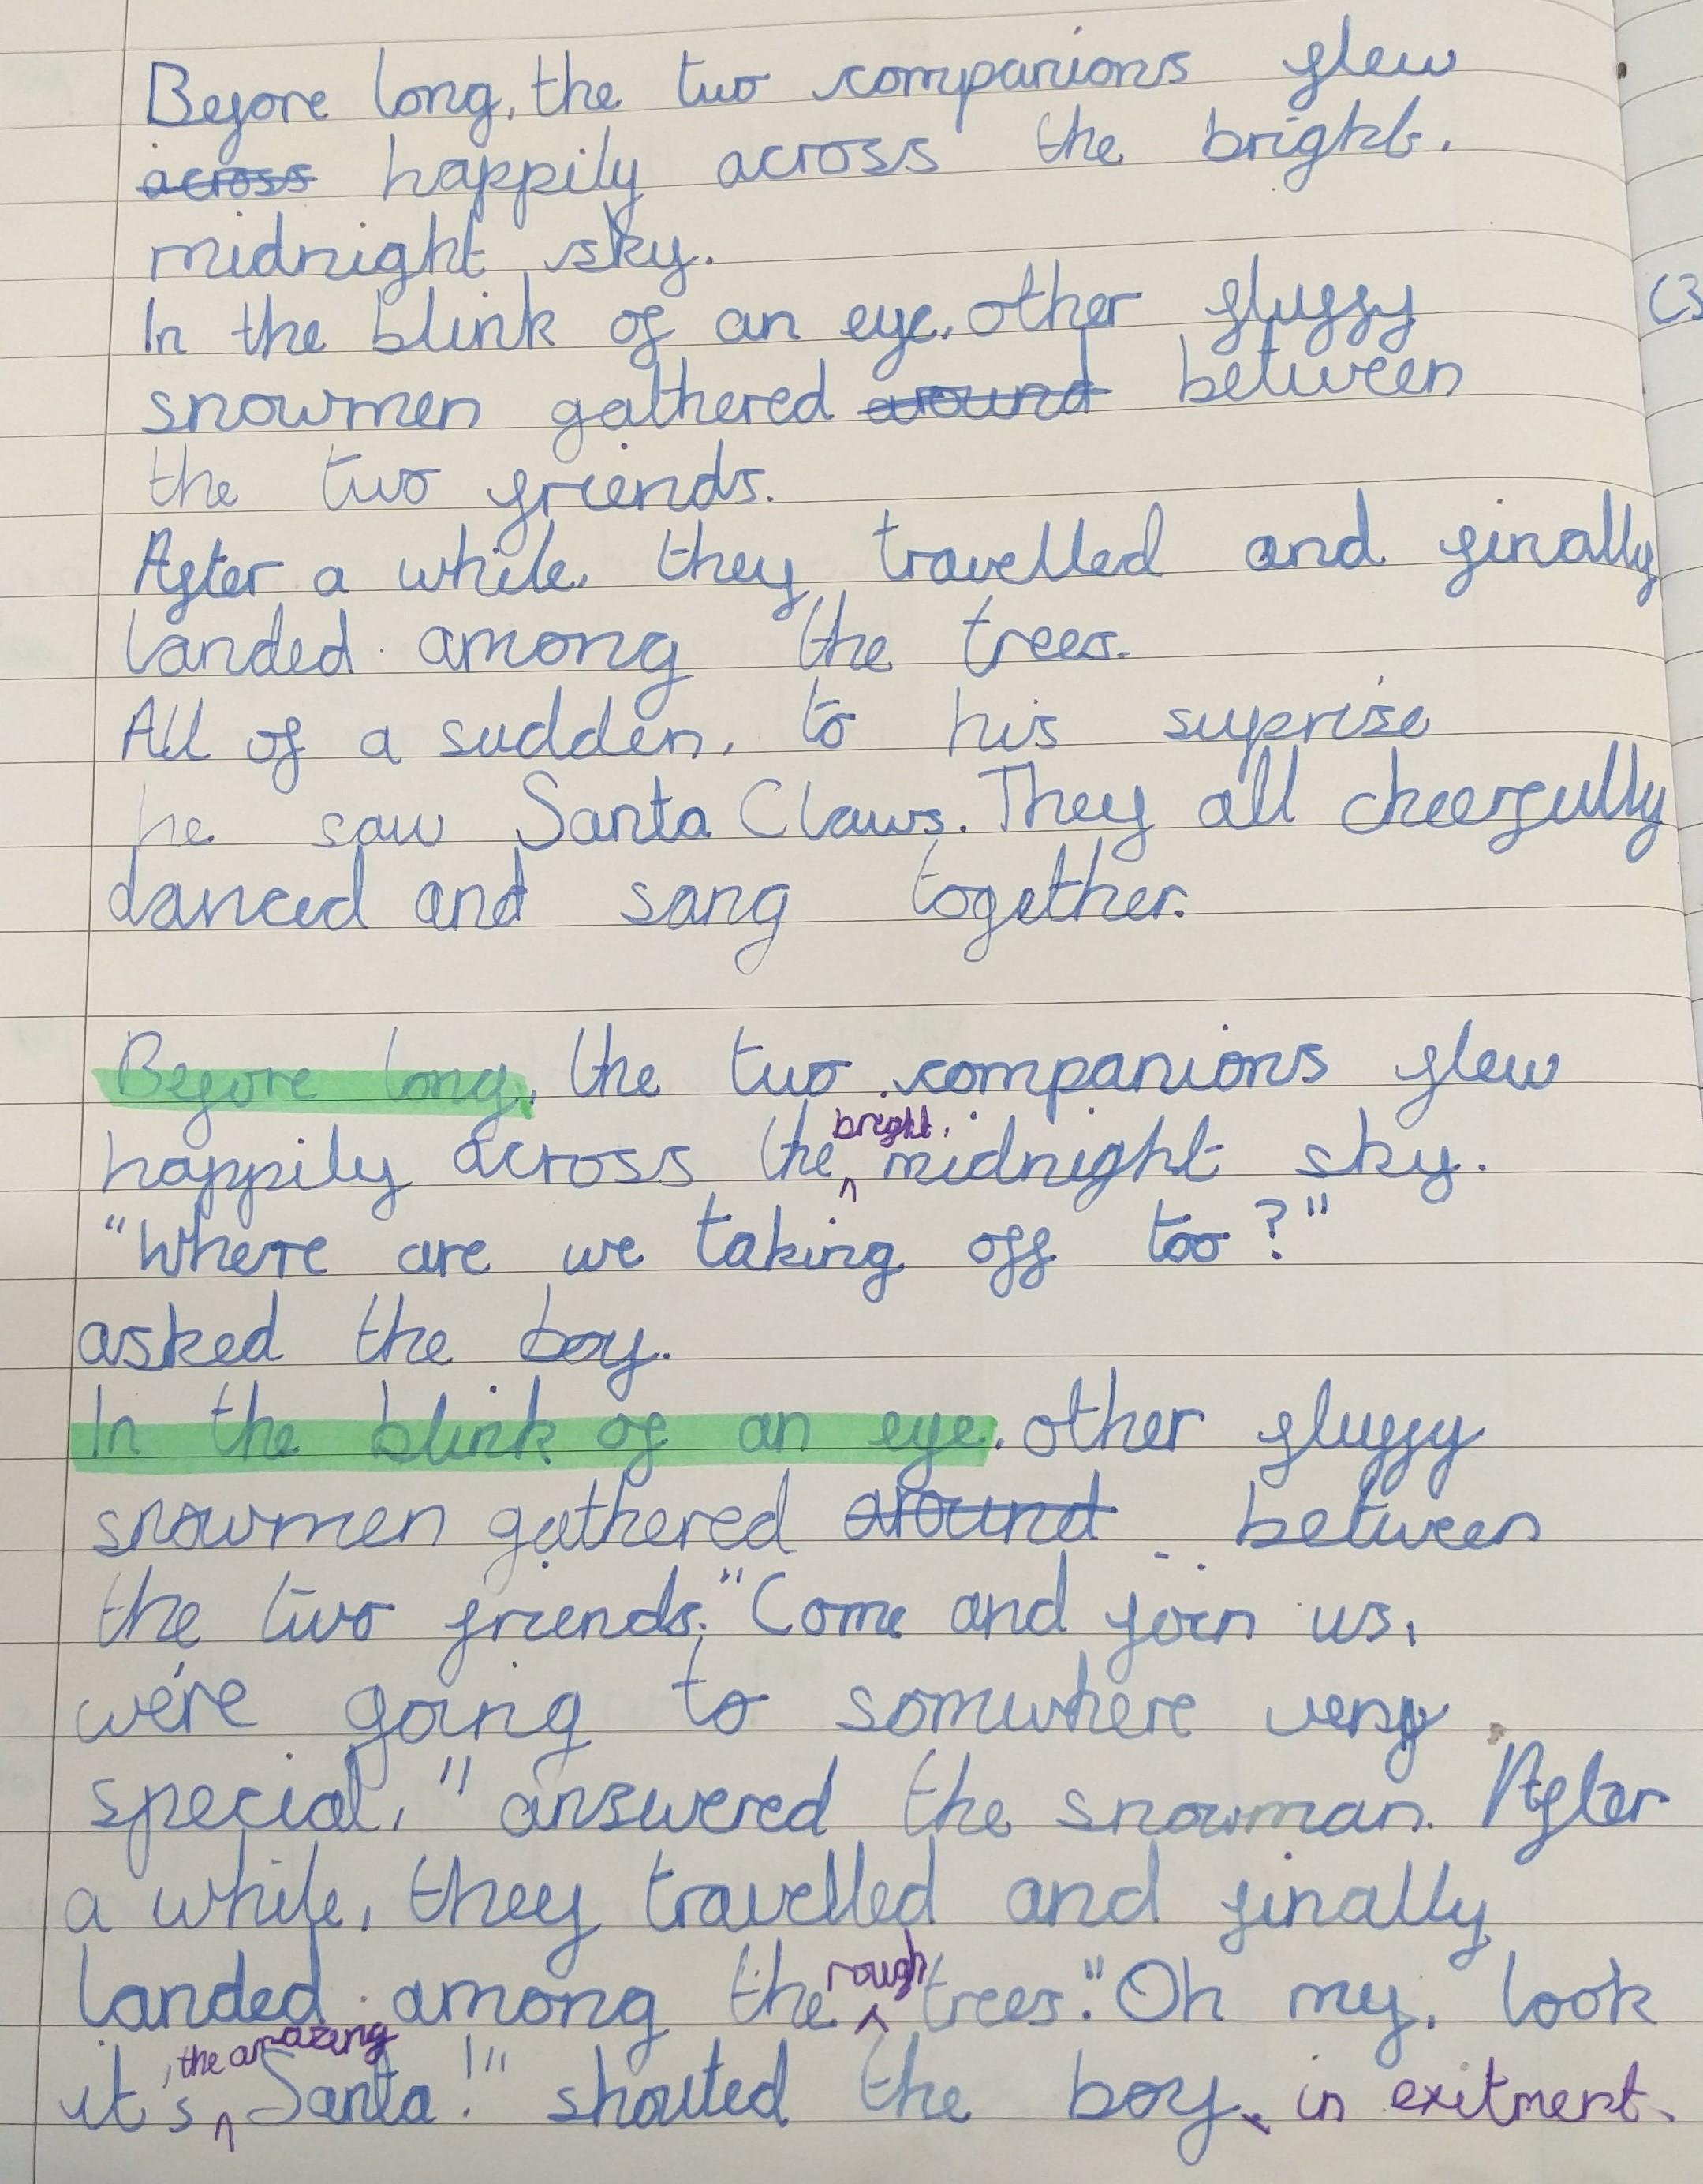 Before long, the two companions flew
across happily across the bright,
midnight sky.
In the blink of an eye, other fluffy
snowmen gathered around between
the two friends.
After a while, they travelled and finally
landed among the trees.
All of a sudden, to his suprise
he saw Santa Claws. They all cheerfully
danced and sang together.
Before long, the two companions flew
bright,
happily across the ^ midnight sky.
"Where are we taking off too?"
asked the boy.
In the blink of an eye, other fluffy
snowmen gathered around between
the two friends. "Come and join us,
we're going to somewhere very
special," answered the snowman. After
a while, they travelled and finally
rough
landed among the ^ trees. "Oh my, look
the amazing
it's ^ Santa!" shouted the boy in exitment.
(3